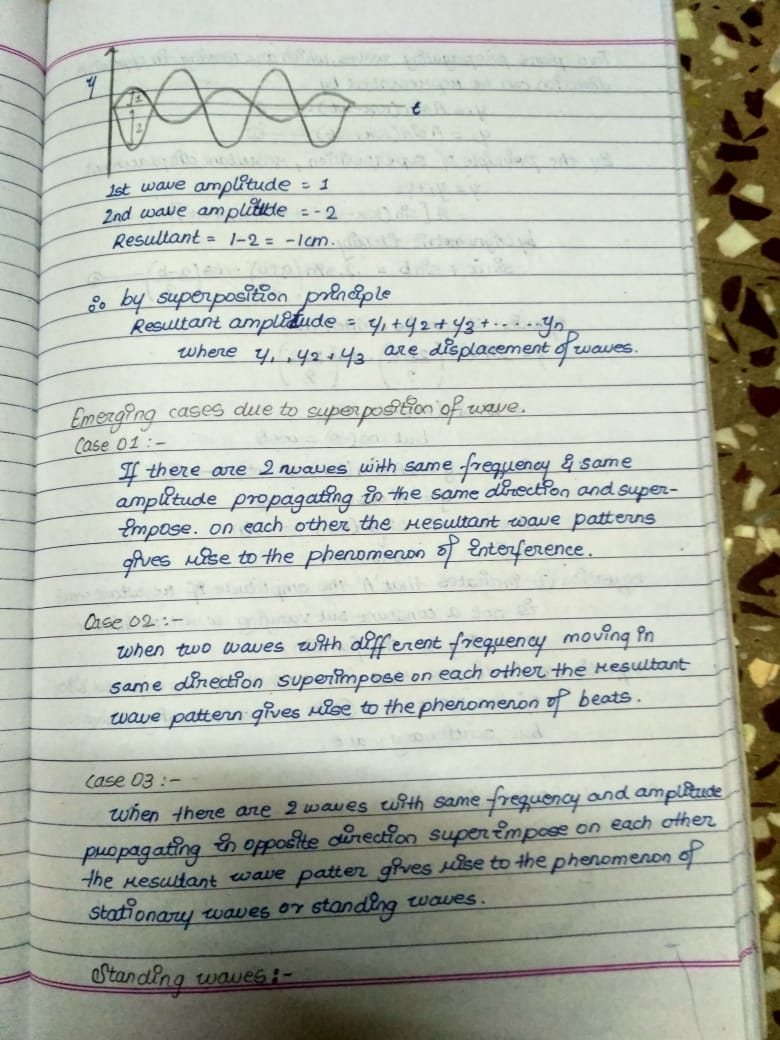 y
1
2
t
1st wave amplitude = 1
2nd wave amplitude = -2
Resultant = 1-2 = -1cm.
∴ by superposition principle
Resultant amplitude = y₁ + y₂ + y₃ + ..... yn
where y₁, y₂, y₃ are displacement of waves.
Emerging cases due to superposition of wave.
Case 01 :-
If there are 2 waves with same frequency & same
amplitude propagating in the same direction and super-
impose. on each other the resultant wave patterns
gives rise to the phenomenon of interference.
Case 02 :-
when two waves with different frequency moving in
same direction superimpose on each other the resultant
wave pattern gives rise to the phenomenon of beats.
Case 03 :-
When there are 2 waves with same frequency and amplitude
propagating in opposite direction superimpose on each other
the resultant wave patter gives rise to the phenomenon of
stationary waves or standing waves.
Standing waves :-